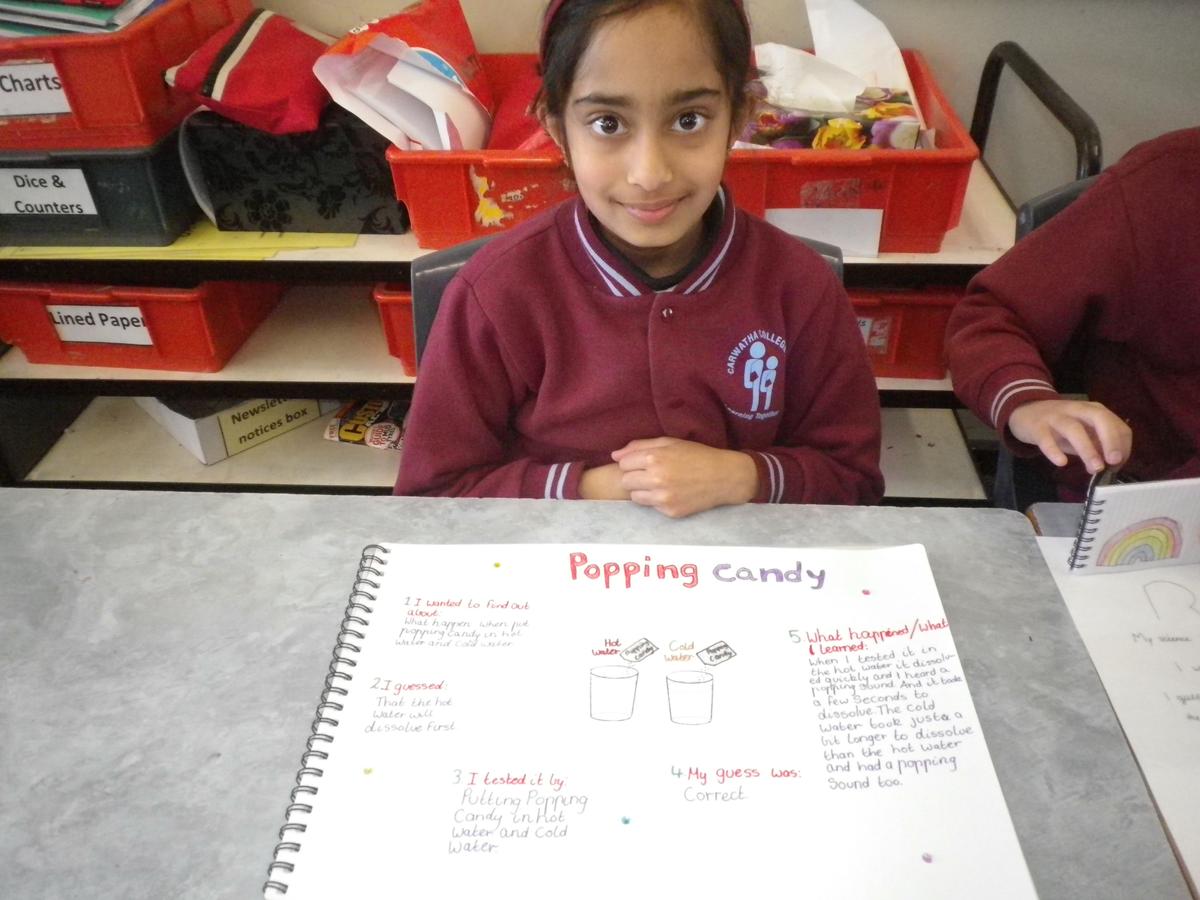 Charts
Dice &
Counters
Lined Paper
Newslett
notices box
CARWATHA COLLEGE
Learning Together
Popping Candy
1 I wanted to find out
about:
What happen when put
popping candy in hot
water and cold water
2. I guessed:
That the hot
Water will
dissolve First
3 I tested it by:
Putting Popping
Candy in hot
Water and Cold
Water.
Hot
water
Popping
candy
Cold
Water
Popping
Candy
4 My guess was:
Correct
5 What happened/what
I learned:
When I tested it in
the hot water it dissolv-
ed quickly and I heard a
popping sound. And it took
a few Seconds to
dissolve. The Cold
Water took just a
bit longer to dissolve
than the hot water
and had a popping
Sound too.
My science